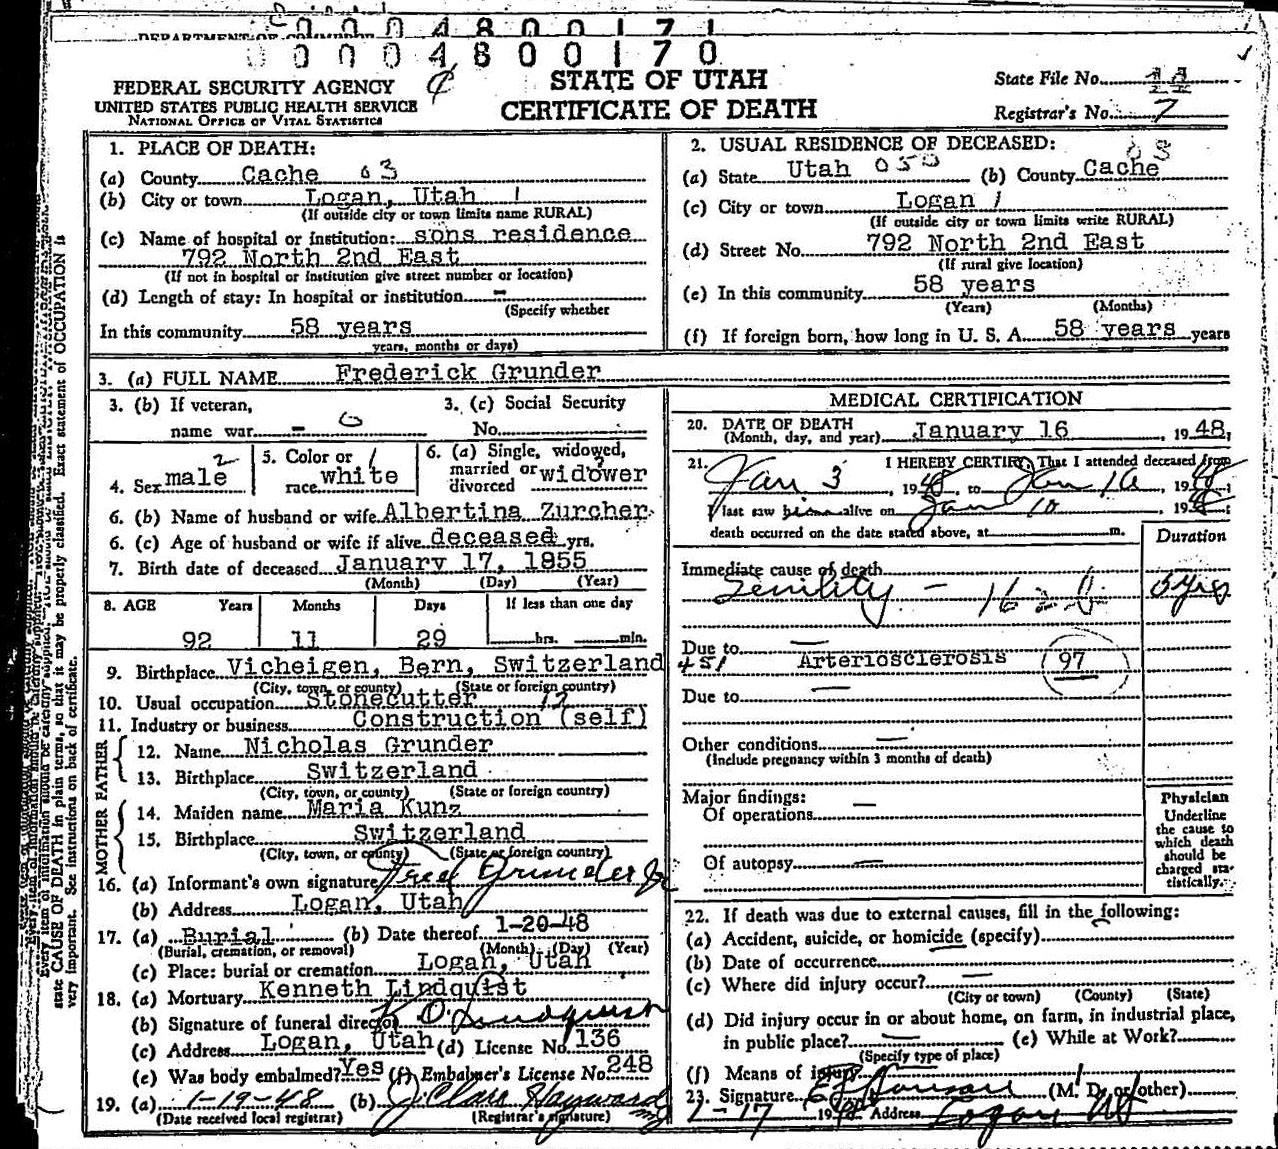 0 0 0 4 8 0 0 1 7 1
0 0 0 4 8 0 0 1 7 0
FEDERAL SECURITY AGENCY
UNITED STATES PUBLIC HEALTH SERVICE
NATIONAL OFFICE OF VITAL STATISTICS
STATE OF UTAH
CERTIFICATE OF DEATH
State File No.
Registrar's No. 7
1. PLACE OF DEATH:
(a) County Cache 03
(b) City or town Logan, Utah 1
(If outside city or town limits name RURAL)
(c) Name of hospital or institution: sons residence
792 North 2nd East
(If not in hospital or institution give street number or location)
(d) Length of stay: In hospital or institution -
(Specify whether
In this community 58 years
years, months or days)
2. USUAL RESIDENCE OF DECEASED:
03
(a) State Utah 050 (b) County Cache
(c) City or town Logan 1
(If outside city or town limits write RURAL)
(d) Street No. 792 North 2nd East
(If rural give location)
(e) In this community 58 years
(Years) (Months)
(f) If foreign born, how long in U. S. A. 58 years years
3. (a) FULL NAME Frederick Grunder
3. (b) If veteran,
name war -
3. (c) Social Security
No.
4. Sex male 2
5. Color or
race white 1
6. (a) Single, widowed,
married or
divorced widower
6. (b) Name of husband or wife Albertina Zurcher
6. (c) Age of husband or wife if alive deceased yrs.
7. Birth date of deceased January 17, 1855
(Month) (Day) (Year)
8. AGE Years Months Days If less than one day
92 11 29 hrs. min.
9. Birthplace Vicheigen, Bern, Switzerland
(City, town, or county) (State or foreign country)
10. Usual occupation Stonecutter 12
11. Industry or business Construction (self)
FATHER
12. Name Nicholas Grunder
13. Birthplace Switzerland
(City, town, or county) (State or foreign country)
MOTHER
14. Maiden name Maria Kunz
15. Birthplace Switzerland
(City, town, or county) (State or foreign country)
16. (a) Informant's own signature Fred Grunder Jr
(b) Address Logan, Utah
17. (a) Burial (b) Date thereof 1-20-48
(Burial, cremation, or removal) (Month) (Day) (Year)
(c) Place: burial or cremation Logan, Utah
18. (a) Mortuary Kenneth Lindquist
(b) Signature of funeral director K O Lindquist
(c) Address Logan, Utah (d) License No. 136
(e) Was body embalmed? Yes (f) Embalmer's License No. 248
19. (a) 1-19-48 (b) J. Clare Hayward
(Date received local registrar) (Registrar's signature)
MEDICAL CERTIFICATION
20. DATE OF DEATH
(Month, day, and year) January 16, 1948;
21. I HEREBY CERTIFY, That I attended deceased from
Jan 3, 1948, to Jan 16, 1948;
I last saw him alive on Jan 10, 1948;
death occurred on the date stated above, at m.
Duration
Immediate cause of death
Senility - 162 5 yrs
Due to -
451 Arteriosclerosis 97
Due to -
Other conditions -
(Include pregnancy within 3 months of death)
Major findings:
Of operations -
Of autopsy -
Physician
Underline
the cause to
which death
should be
charged sta-
tistically.
22. If death was due to external causes, fill in the following:
(a) Accident, suicide, or homicide (specify)
(b) Date of occurrence
(c) Where did injury occur? -
(City or town) (County) (State)
(d) Did injury occur in or about home, on farm, in industrial place,
in public place? - (e) While at Work?
(Specify type of place)
(f) Means of injury
23. Signature (M. D. or other)
1-17 1948 Address Logan Ut
state CAUSE OF DEATH in plain terms, so that it may be properly classified. Exact statement of OCCUPATION is
very important. See instructions on back of certificate.